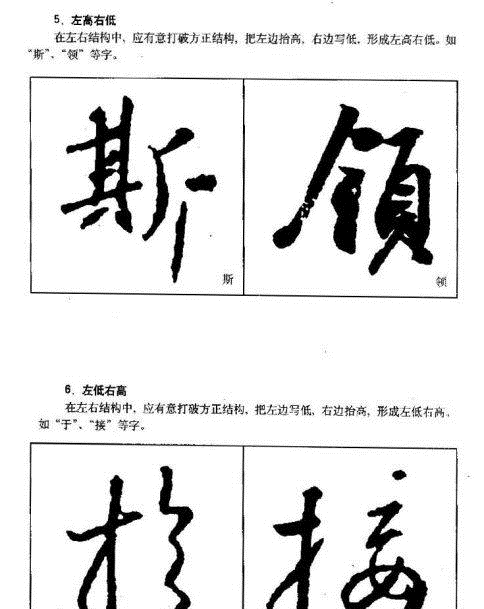 5．左高右低
在左右结构中、应有意打破方正结构，把左边抬高，右边写低，形成左高右低。如
“斯”、“领”等字。
斯 領
斯 领
6．左低右高
在左右结构中，应有意打破方正结构，把左边写低，右边抬高，形成左低右高。
如“于”、“接”等字。
於 接